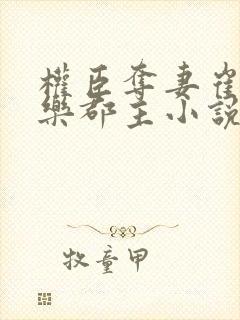 權臣奪妻崔
樂郡主小說
牧童甲